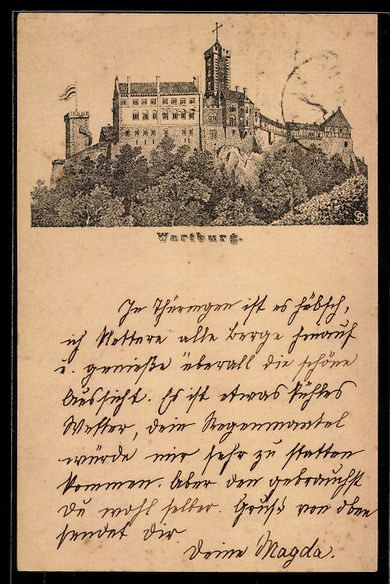 Wartburg.
In Thüringen ist es hübsch,
ich klettere alle Berge hinauf
u. genieße überall die schöne
Aussicht. Es ist etwas kühles
Wetter, dein Regenmantel
würde mir sehr zu statten
kommen. Aber den gebrauchst
Du wohl selber. Gruß von oben
sendet dir
Deine Magda.